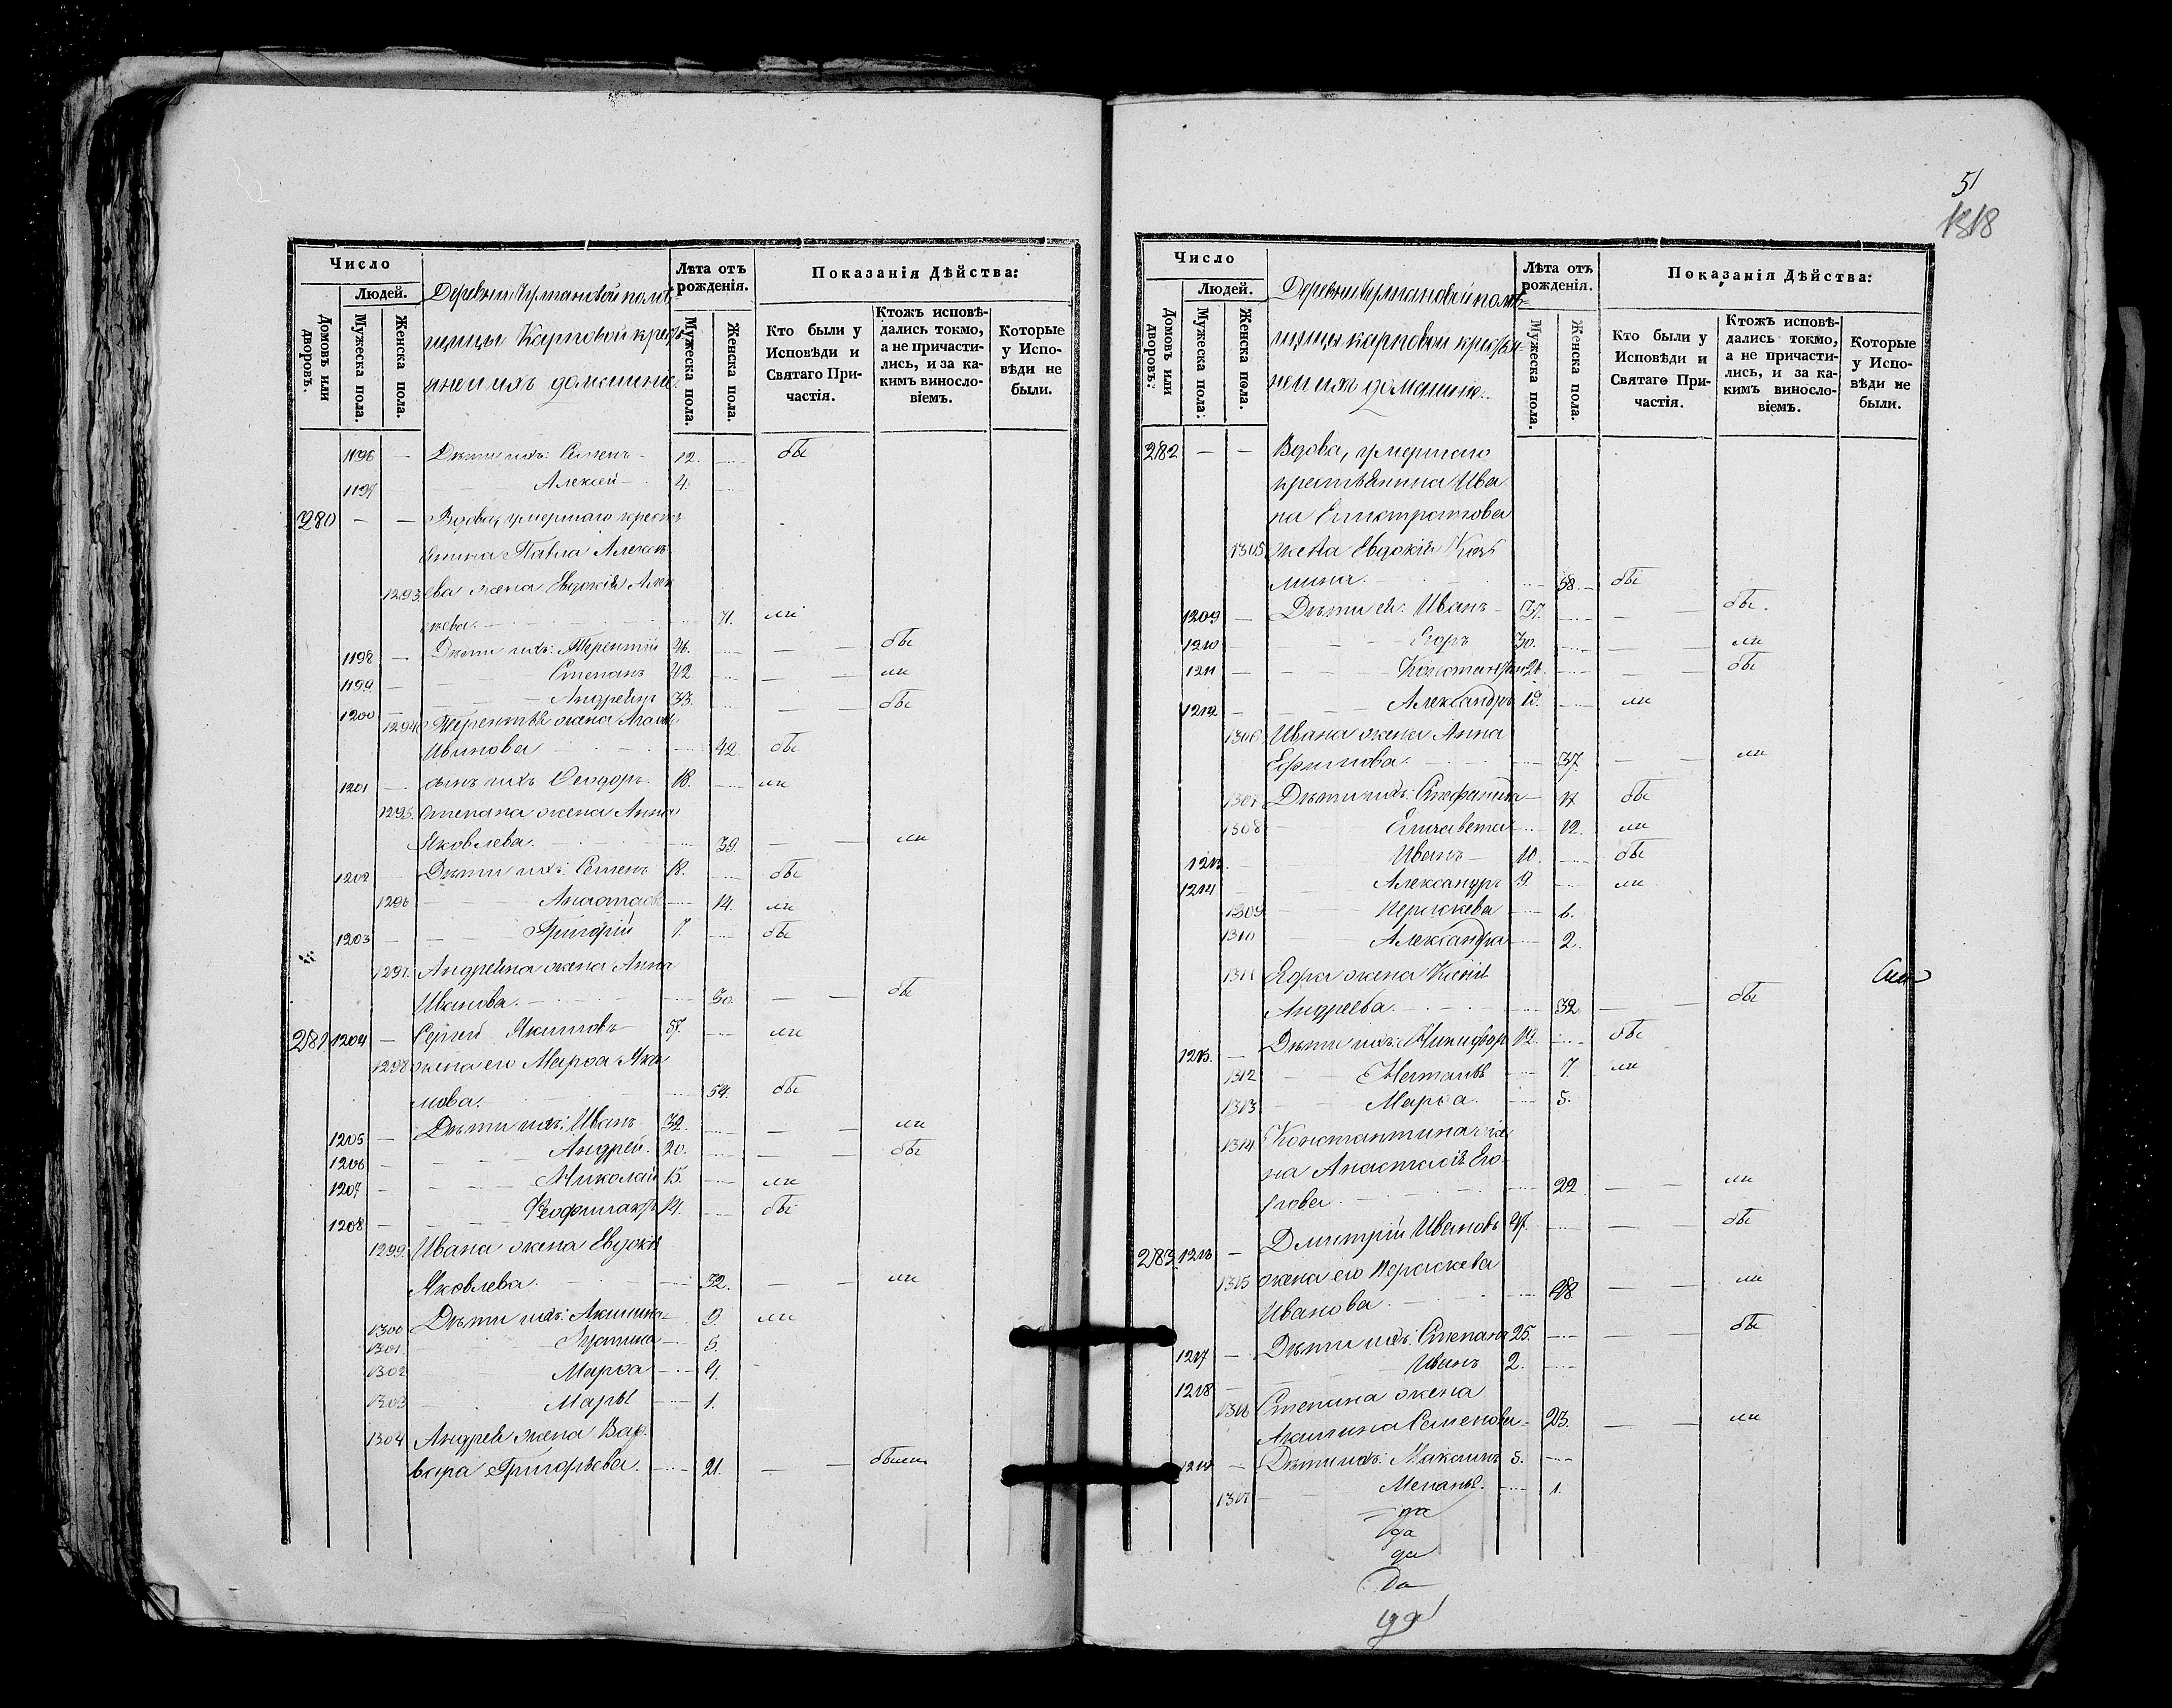 Число
Людей.
Домовъ или дворовъ.
Мужеска пола.
Женска пола.
Деревни Чурмановой помѣ-
щицы Карповой кресть-
яне и ихъ домашніе.
Лѣта отъ рожденія.
Мужеска пола.
Женска пола.
Показанія Дѣйства:
Кто были у Исповѣди и Святаго Причастія.
Ктожъ исповѣдались токмо, а не причастились, и за какимъ винословіемъ.
Которые у Исповѣди не были.
1196 — Дѣти ихъ: Семенъ 12. бы
1197 Алексей 4.
280 — — Вдова, умершаго кресть
янина Павла Алексѣ
1293. ева жена Евдокія Алек
сѣева. 71. ли
1198 — Дѣти ихъ: Терентій 46. — — бы
1199 — Степанъ 42 — — ли
1200 — Андреянъ 33. — — бы
1294 Терентія жена
Иванова 42. бы
1201 — сынъ ихъ Ѳеодоръ 18. ли
1295. Степана жена Анна
Яковлева. 39. — — ли
1202 Дѣти ихъ: Семенъ 18. бы
1296 Анастасія 14. ли
1203 — Григорій 7. бы
1297. Андреяна жена Анна
Иванова. 30. — — бы
281 1204 — Сергей Акимовъ 57. ли
1298 жена его Марѳа Яки
мова. 54. бы
1205 — Дѣти ихъ: Иванъ 32. — — ли
1206 — Андрей. 20. — — бы
1207 — Николай 15. — ли
1208 — Феофилактъ 14. бы
1299. Ивана жена Евдокія
Яковлева. 32. — — ли
1300 Дѣти ихъ: Акилина 9. ли
1301. Устина 5.
1302 Марѳа 4.
1303 Марья 1.
1304 Андрея жена Вар
вара Григорьева. 21. — — были
51
1318
Число
Людей.
Домовъ или дворовъ:
Мужеска пола:
Женска пола.
Деревни Чурмановой помѣ-
щицы Карповой крестья-
не и ихъ домашніе.
Лѣта отъ рожденія.
Мужеска пола.
Женска пола.
Показанія Дѣйства:
Кто были у Исповѣди и Святаго Причастія.
Ктожъ исповѣдались токмо, а не причастились, и за какимъ винословіемъ.
Которые у Исповѣди не были.
282 — — Вдова, умершаго
крестьянина Ива
на Елистратова
1305 жена Евдокія Козь
мина. 58. бы
1209 — Дѣти ея: Иванъ 37. — — бы.
1210 — Егоръ 30. — — ли
1211 — Константинъ 26. — — бы
1212 — Александръ 19. ли
1306 Ивана жена Анна
Ефимова. 37. — — ли
1307 Дѣти ихъ: Стефанида 14 бы
1308 Елизавета 12. ли
1213 Иванъ 10. бы
1214 Александръ 9. ли
1309 Параскева 6.
1310 Александра 2.
1311 Егора жена Ксенія
Андреева. 32 — — бы
1215. — Дѣти ихъ: Никифоръ 12. бы
1312 Наталья 7. ли
1313 Марѳа. 5.
1314 Константина же
на Анастасія Его-
рова. 22 — — ли
283 1216 — Дмитрій Ивановъ 47. — — бы
1315 жена его Параскева
Иванова. 48 — — ли
1217 — Дѣти ихъ: Степанъ 25. — — бы
1218 — Иванъ 2.
1316 Степана жена
Акилина Семенова 23. — — ли
1219 — Дѣти ихъ: Максимъ 5.
1317 Меланья. 1.